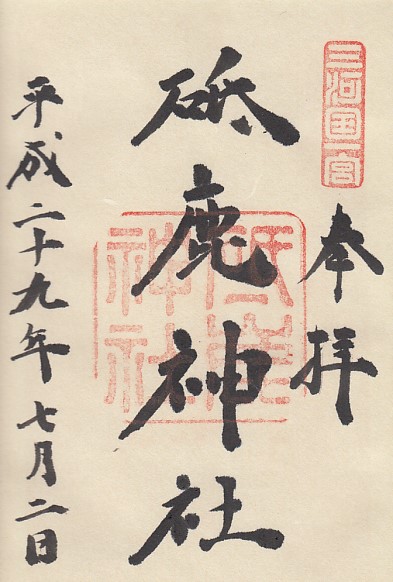 三河国一宮
奉拝
砥鹿神社
砥鹿神社
平成二十九年七月二日